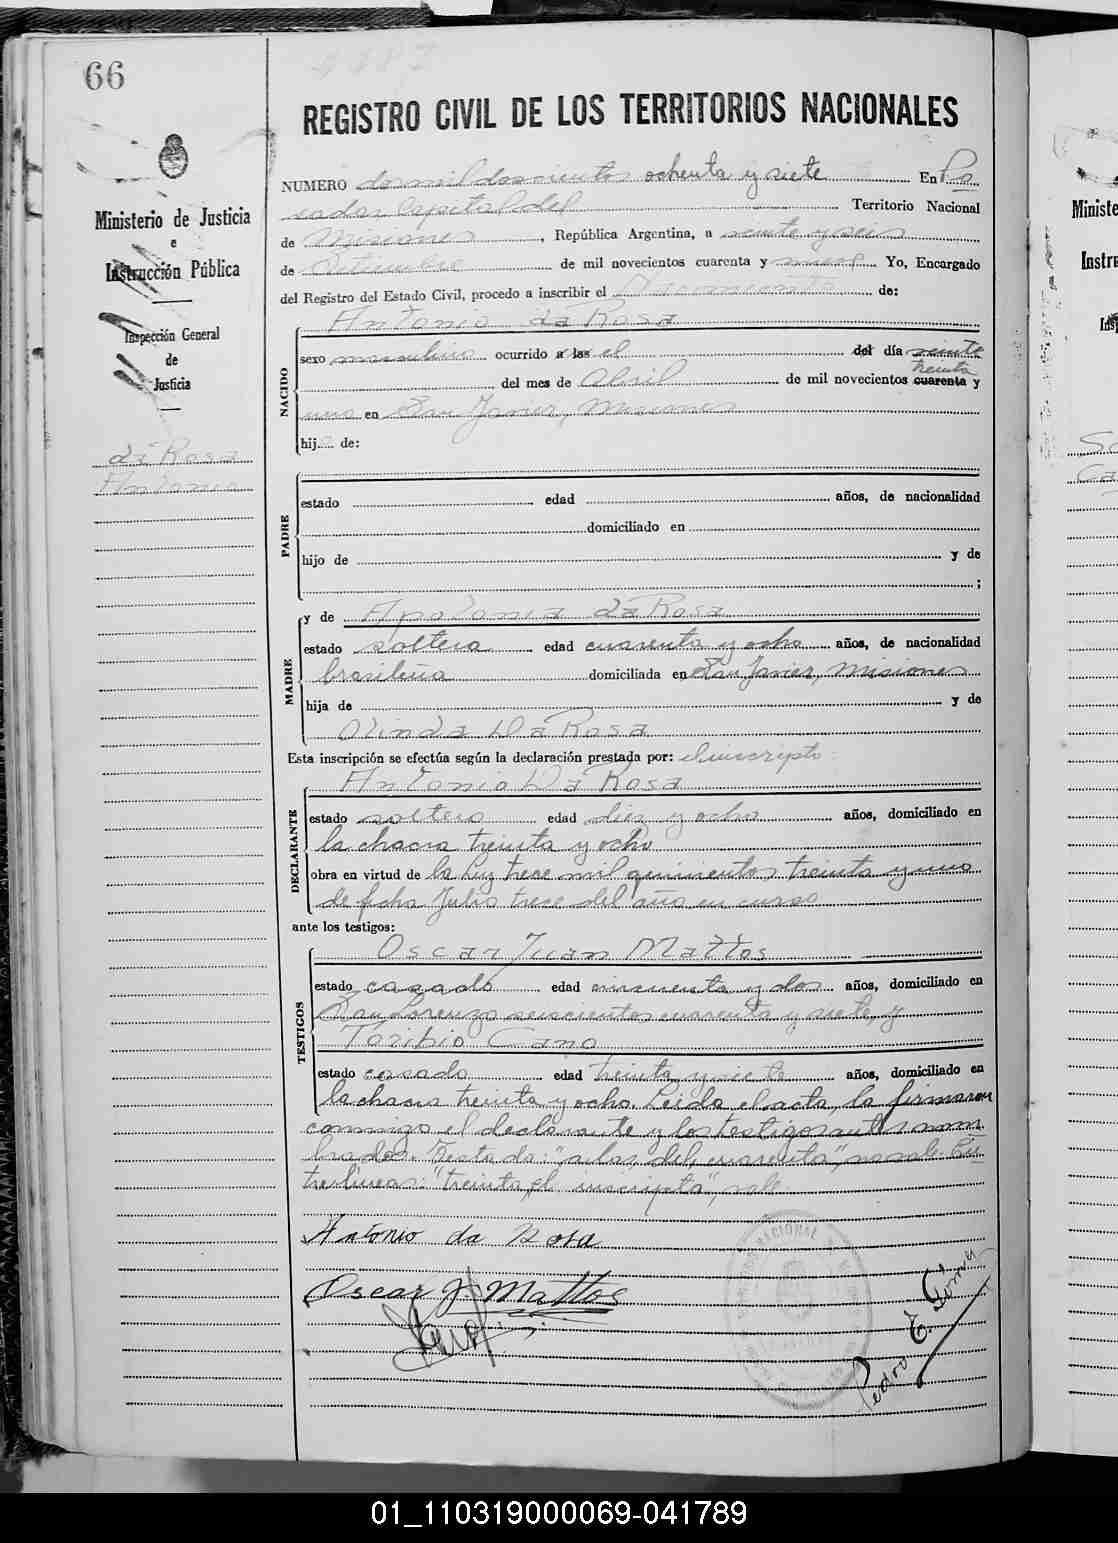 66
REGISTRO CIVIL DE LOS TERRITORIOS NACIONALES
Ministerio de Justicia
e
Instrucción Pública
Inspección General
de
Justicia
da Rosa
Antonio
NUMERO dos mil doscientos ochenta y siete En Po
sadas Capital del Territorio Nacional
de Misiones, República Argentina, a veinte y seis
de Setiembre de mil novecientos cuarenta y nueve Yo, Encargado
del Registro del Estado Civil, procedo a inscribir el Nacimiento de:
NACIDO
Antonio da Rosa
sexo masculino ocurrido a las el del día veinte
treinta
del mes de Abril de mil novecientos cuarenta y
uno en San Javier, Misiones
hijo de:
PADRE
estado edad años, de nacionalidad
domiciliado en
hijo de y de
;
MADRE
y de Apolonia da Rosa
estado soltera edad cuarenta y ocho años, de nacionalidad
brasileña domiciliada en San Javier, Misiones
hija de y de
Olinda Da Rosa
Esta inscripción se efectúa según la declaración prestada por: el inscripto
DECLARANTE
Antonio Da Rosa
estado soltero edad diez y ocho años, domiciliado en
la chacra treinta y ocho
obra en virtud de la Ley trece mil quinientos treinta y uno
de fecha Julio trece del año en curso
ante los testigos:
TESTIGOS
Oscar Juan Mattos
estado casado edad cincuenta y dos años, domiciliado en
San Lorenzo seiscientos cuarenta y siete, y
Toribio Cano
estado casado edad treinta y siete años, domiciliado en
la chacra treinta y ocho. Leida el acta, la firmaron
conmigo el declarante y los testigos antes nom
brados. Testado: "a las, del, cuarenta", no vale. En
tre lineas: "treinta, el inscripto", vale
Antonio da Rosa
Oscar J. Mattos
Pedro E.
01_110319000069-041789